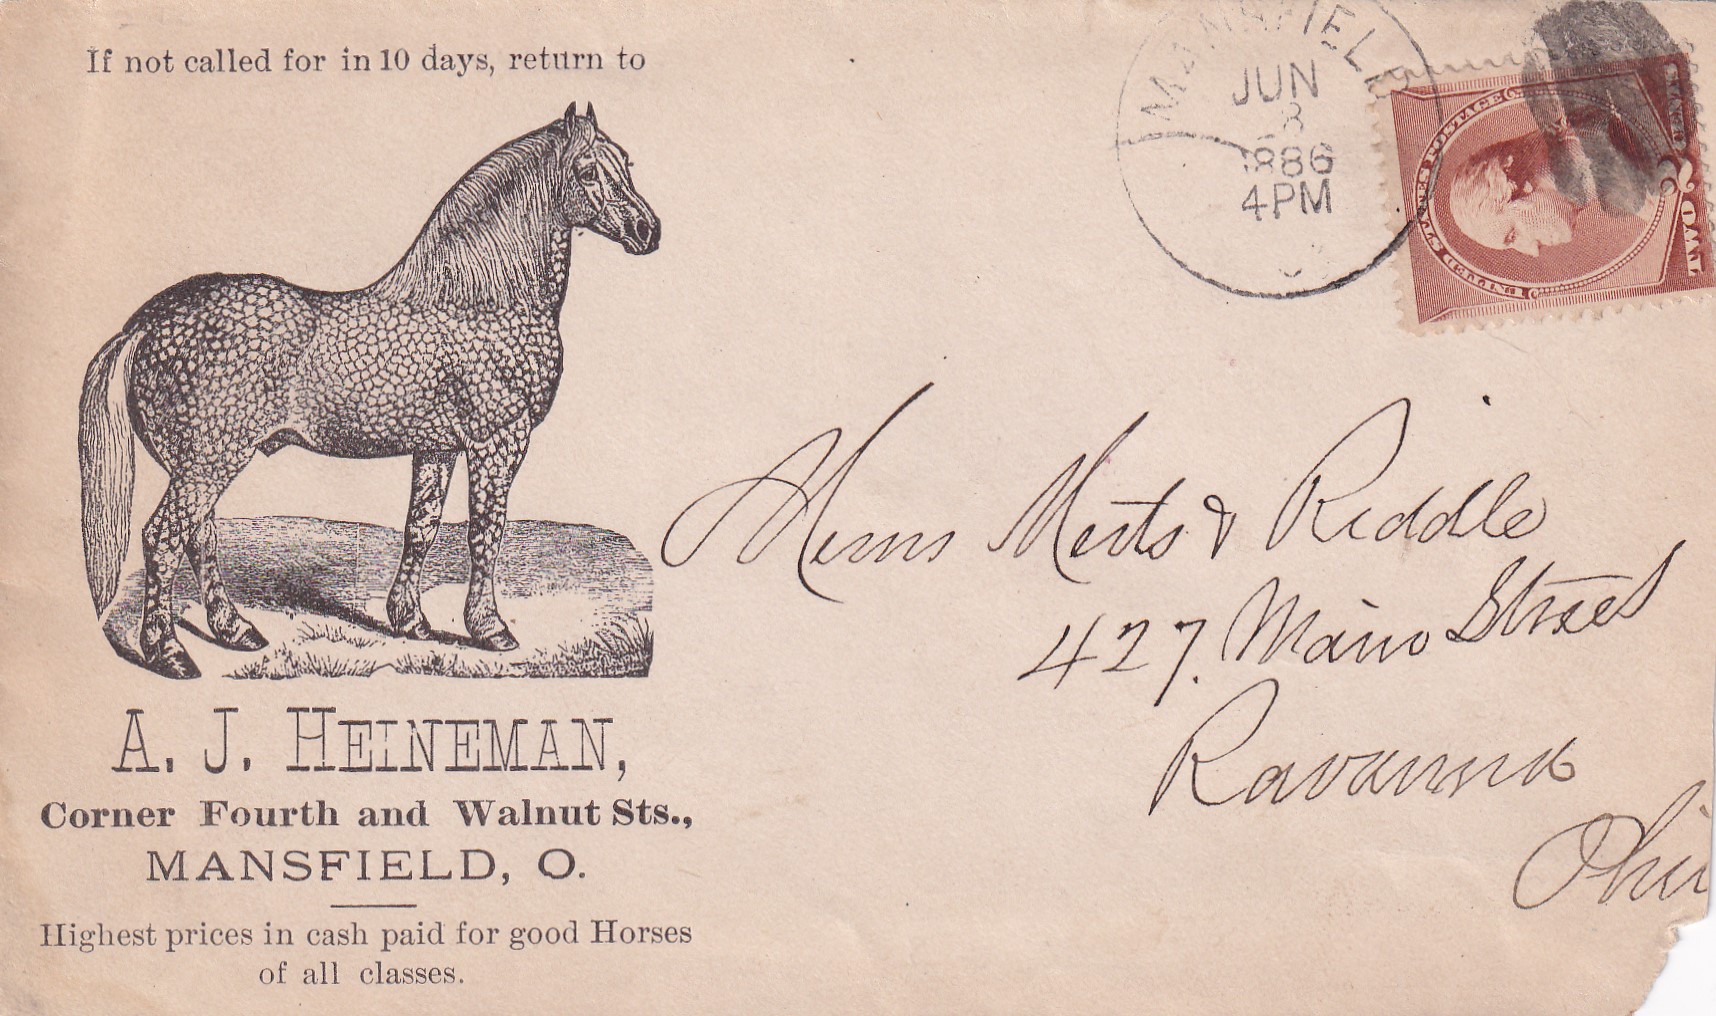 If not called for in 10 days, return to
A. J. HEINEMAN,
Corner Fourth and Walnut Sts.,
MANSFIELD, O.
Highest prices in cash paid for good Horses
of all classes.
MANSFIELD
JUN
1886
4PM
UNITED STATES POSTAGE
TWO
2
Merts & Riddle
427. Main Street
Ravanna
Ohio